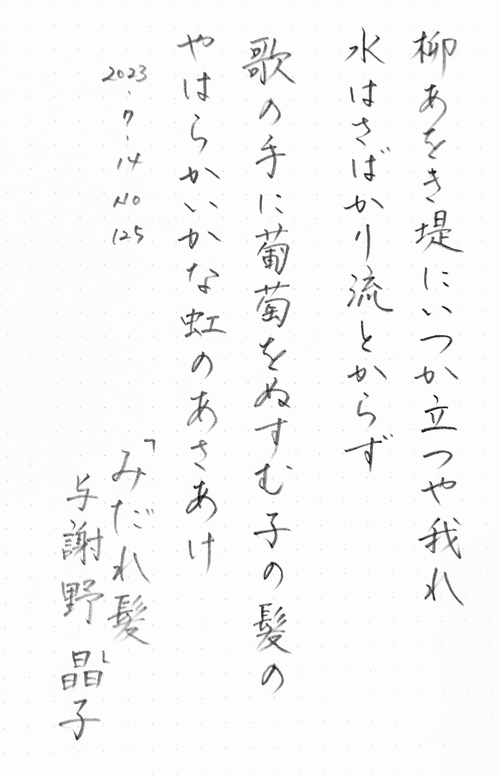 柳あをき堤にいつか立つや我れ
水はさばかり流とからず
歌の手に葡萄をぬすむ子の髪の
やはらかいかな虹のあさあけ
2023・7・14 No 125
「みだれ髪」
与謝野晶子